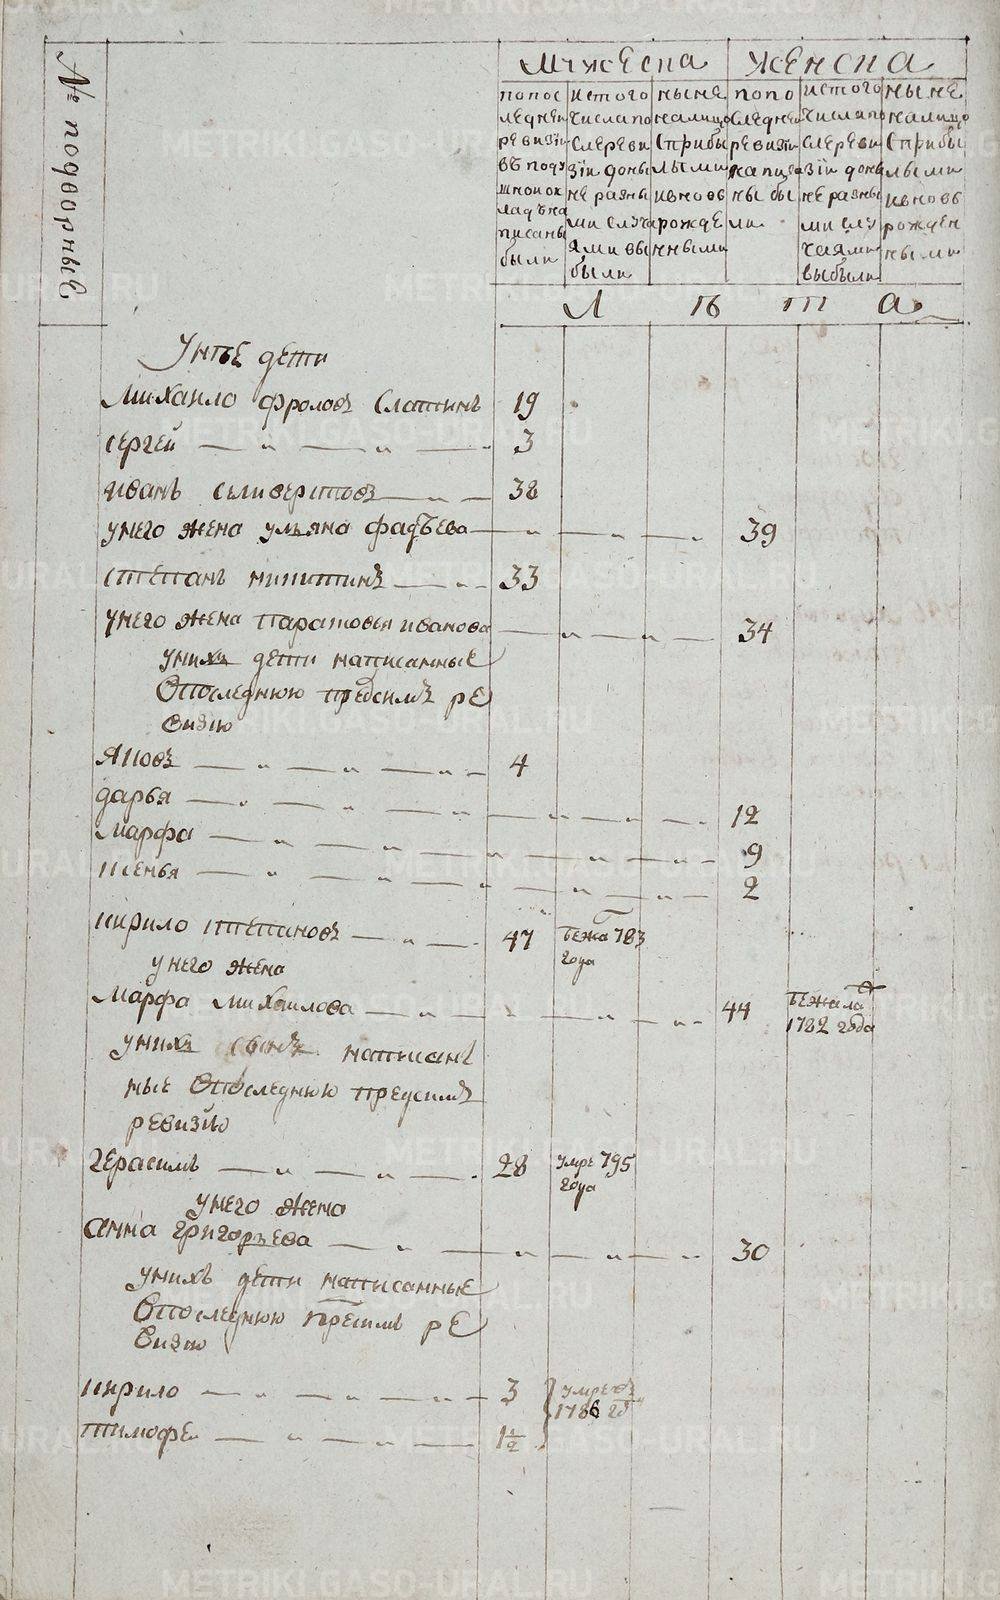 № подворные
Мужеска
Женска
попос
ледней
ревизiи
въ поду
шной ок
ладъ на
писаны
были
истого
числа по
следреви
зiи доны
не разны
ми случа
ями вы
были
ныне
налицо
сприбы
лыми
ивновь
рожде
нными
попо
следней
ревизiи
написа
ны бы
ли
истого
числа по
следреви
зiи доны
не разны
ми слу
чаями
выбыли
ныне
налицо
сприбы
лыми
ивновь
рожден
ными
Л ѣ т а
Унтѣе дети
Михаило фроловъ Слаттинъ 19
сергей 3
иванъ селиверстовъ 38
унего жена ульяна фадъева 39
степанъ никитинъ 33
унего жена Парасковья иванова 34
унихъ дети написанные
Впоследнюю предсимъ ре
визiю
Яковъ 4
дарья 12
Марфа 9
ксенья 2
кирило степановъ 47 бежа 783
года
унего жена
Марфа михаилова 44 бежала
1782 года
унихъ сынъ написан
ные Впоследнюю предсимъ
ревизiю
Герасимъ 28 умре 795
года
унего жена
Анна григорьева 30
унихъ дети написанные
Впоследнюю пресимъ ре
визiю
кирило 3 умре въ
1786 го
тимофе 1 1/2
METRIKI.GASO-URAL.RU